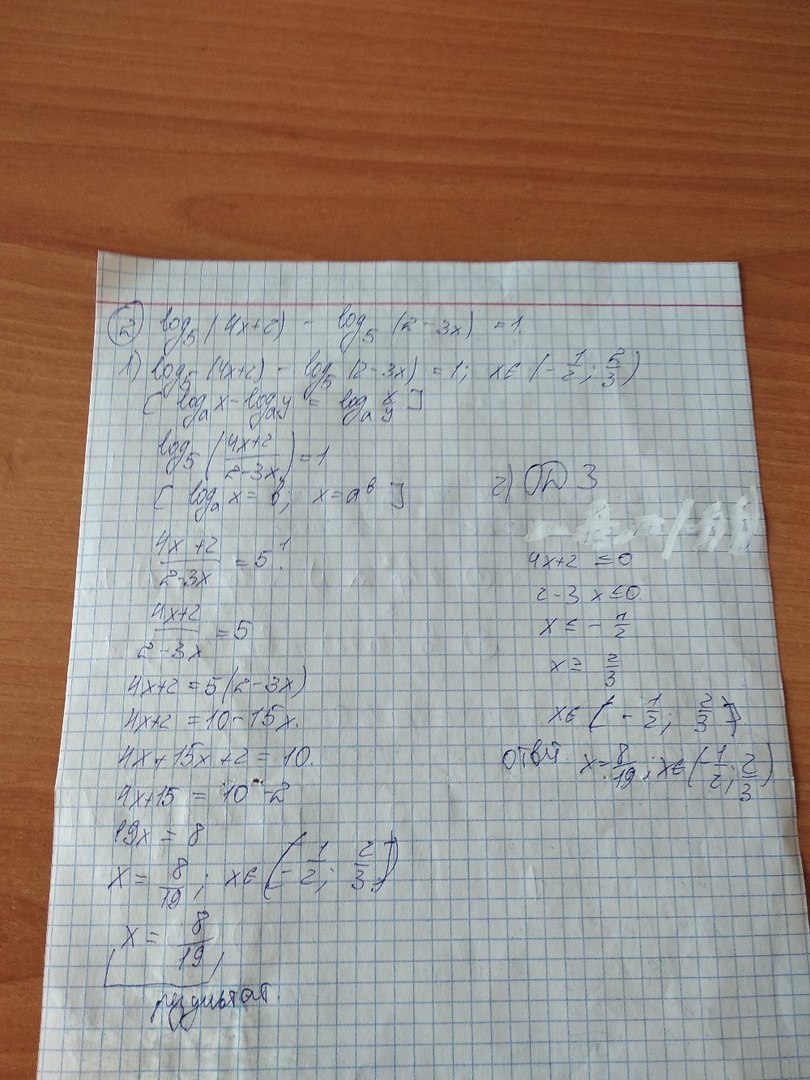 ② log₅(4x+2) - log₅(2-3x) = 1.
1) log₅(4x+2) - log₅(2-3x) = 1; x∈(-1/2; 5/3)
[logₐx - logₐy = logₐ x/y]
log₅((4x+2)/(2-3x)) = 1
[logₐx = b; x = aᵇ]
(4x+2)/(2-3x) = 5¹
(4x+2)/(2-3x) = 5
4x+2 = 5(2-3x)
4x+2 = 10-15x.
4x+15x+2 = 10.
4x+15 = 10-2
19x = 8
x = 8/19; x∈(-1/2; 2/3)
x = 8/19
результат.
2) ОДЗ
4x+2 ≤0
2-3x ≤0.
x ≤ -1/2
x ≥ 2/3
x∈(-1/2; 2/3)
Ответ x=8/19; x∈(-1/2; 2/3)